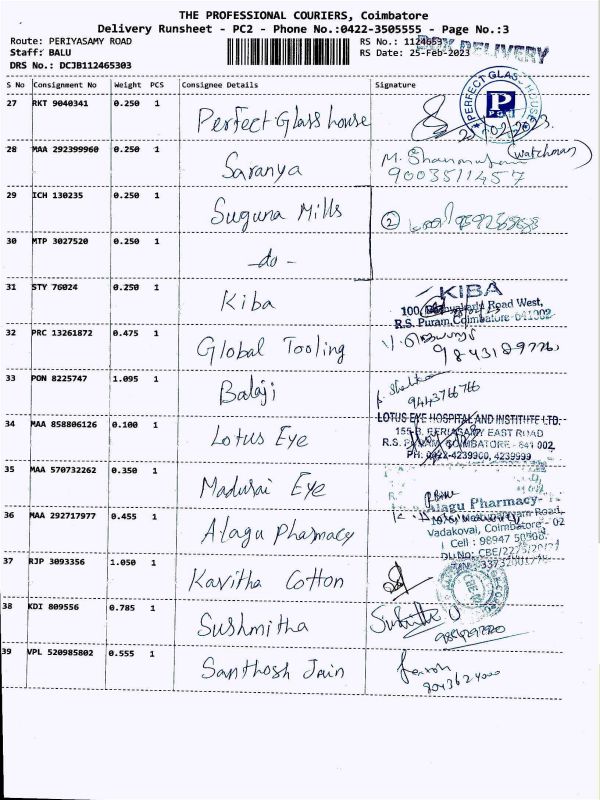 THE PROFESSIONAL COURIERS, Coimbatore
Delivery Runsheet - PC2 - Phone No.:0422-3505555 - Page No.:3
Route: PERIYASAMY ROAD
Staff: BALU
DRS No.: DCJB112465303
RS No.: 1124653
DELIVERY
RS Date: 25-Feb-2023
S No Consignment No Weight PCS Consignee Details Signature
27 RKT 9040341 0.250 1 Perfect Glass house
PERFECT GLASS HOUSE
P
(watchman)
28 MAA 292399960 0.250 1 Saranya
9003511457
29 ICH 130235 0.250 1 Suguna Mills
2
30 MTP 3027520 0.250 1 -do-
31 STY 76024 0.250 1 Kiba
KIBA
Road West,
R.S. Puram, Coimbatore-641002
32 PRC 13261872 0.475 1 Global Tooling
33 PON 8225747 1.095 1 Balaji
9443766766
34 MAA 858806126 0.100 1 Lotus Eye
LOTUS EYE HOSPITAL AND INSTITUTE LTD.
EAST ROAD
COIMBATORE - 641 002,
PH: 0422-4239900, 4239999
35 MAA 570732262 0.350 1 Madurai Eye
36 MAA 292717977 0.455 1 Alagu Pharmacy
Alagu Pharmacy
Road,
Vadakoval, Coimbatore - 02
Cell : 98947
37 RJP 3093356 1.050 1 Kavitha Cotton
38 KDI 809556 0.785 1 Sushmitha
39 VPL 520985802 0.555 1 Santhosh Jain